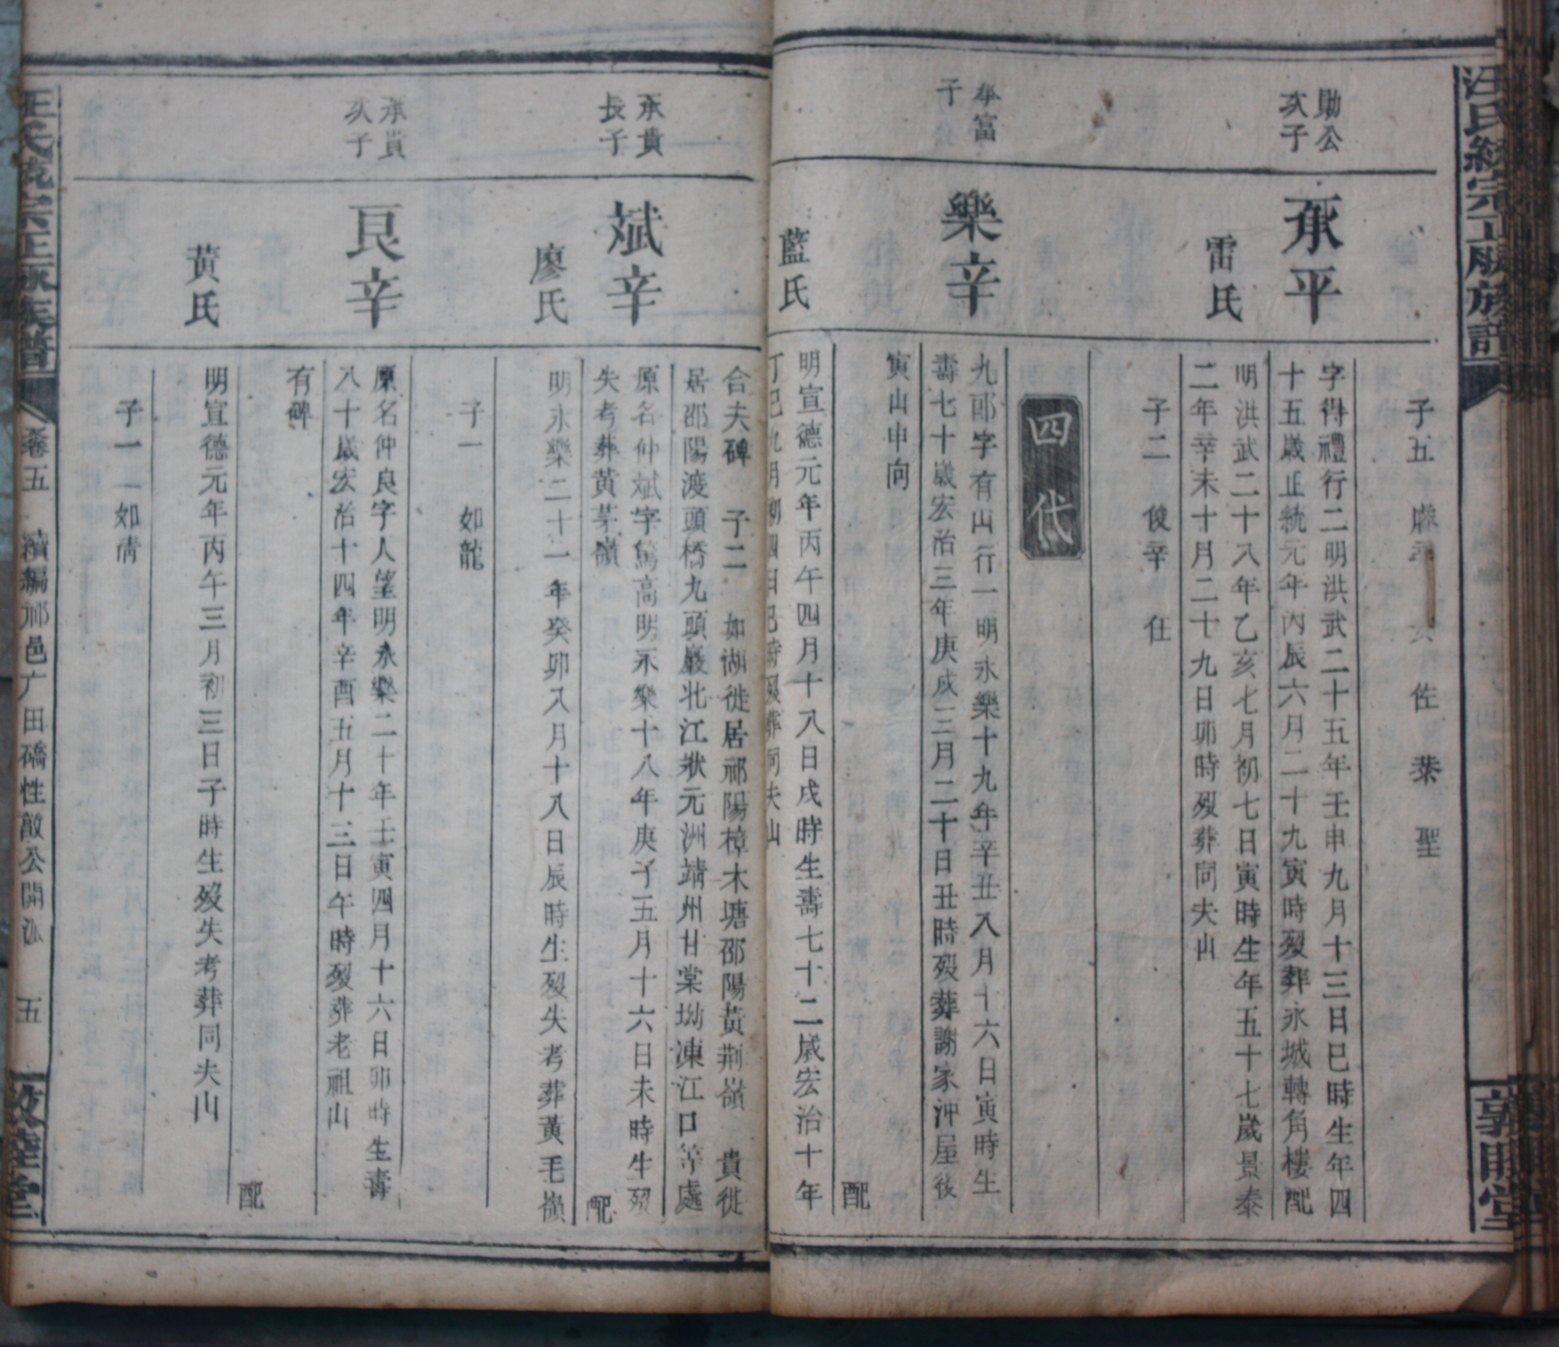 子五 佐 棻 聖
勛公
次子
承平
雷氏
字得禮行二明洪武二十五年壬申九月十三日巳時生年四
十五歲正統元年丙辰六月二十九寅時歿葬永城轉角樓配
明洪武二十八年乙亥七月初七日寅時生年五十七歲景泰
二年辛未十月二十九日卯時歿葬同夫山
子二 俊辛 任
四代
承富
子
樂辛
藍氏
九郎字有山行一明永樂十九年辛丑八月十六日寅時生
壽七十歲宏治三年庚戌三月二十日丑時歿葬謝家沖屋後
寅山申向
配
明宣德元年丙午四月十八日戌時生壽七十二歲宏治十年
丁巳九月初四日巳時歿葬同夫山
合夫碑 子二 如湖徙居祁陽樟木塘邵陽黃荆嶺 貴徙
居邵陽渡頭橋九頭巖北江狀元洲靖州甘棠坳凍江口等處
承貴
長子
斌辛
廖氏
原名仲斌字篤高明永樂十八年庚子五月十六日未時生歿
失考葬黃茅嶺
配
明永樂二十一年癸卯八月十八日辰時生歿失考葬黃毛嶺
子一 如龍
承貴
次子
良辛
黃氏
原名仲良字人望明永樂二十年壬寅四月十六日卯時生壽
八十歲宏治十四年辛酉五月十三日午時歿葬老祖山
有碑
配
明宣德元年丙午三月初三日子時生歿失考葬同夫山
子一 如倩
汪氏統宗正脉族譜
卷五 續編邵邑广田礄性敵公開派 五
敦睦堂